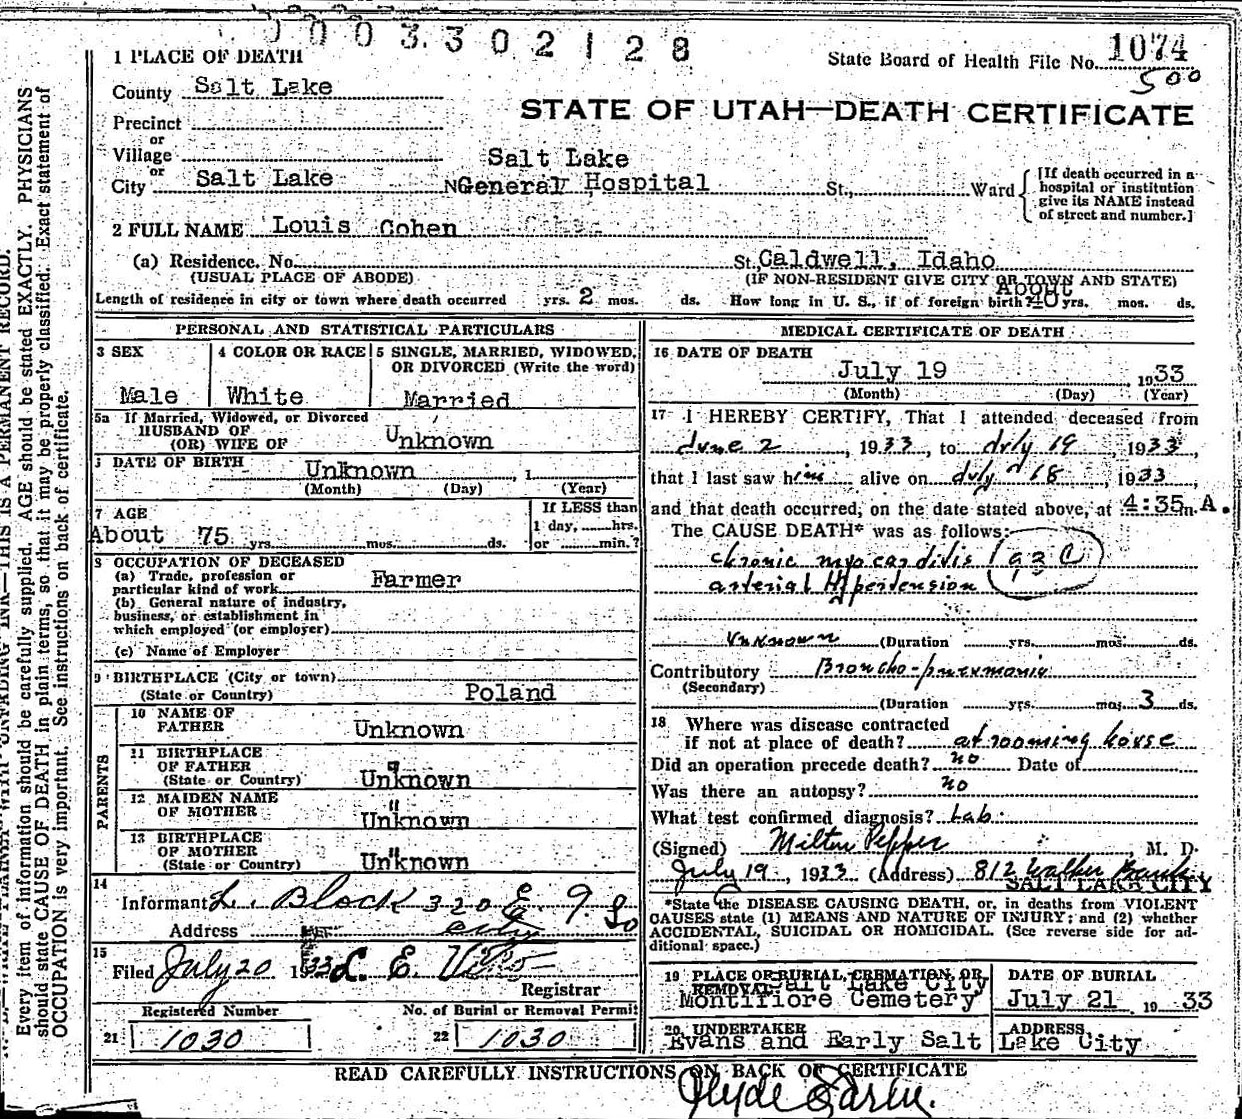 0003302128
State Board of Health File No. 1074
500
1 PLACE OF DEATH
County Salt Lake
STATE OF UTAH—DEATH CERTIFICATE
Precinct
or
Village
or
City Salt Lake
Salt Lake
No General Hospital St., Ward
[If death occurred in a
hospital or institution
give its NAME instead
of street and number.]
2 FULL NAME Louis Cohen
(a) Residence. No. St. Caldwell, Idaho
(USUAL PLACE OF ABODE) (IF NON-RESIDENT GIVE CITY OR TOWN AND STATE)
Length of residence in city or town where death occurred yrs. 2 mos. ds. How long in U. S., if of foreign birth? About 40 yrs. mos. ds.
PERSONAL AND STATISTICAL PARTICULARS
3 SEX
Male
4 COLOR OR RACE
White
5 SINGLE, MARRIED, WIDOWED,
OR DIVORCED (Write the word)
Married
5a If Married, Widowed, or Divorced
HUSBAND OF
(OR) WIFE OF Unknown
6 DATE OF BIRTH Unknown , 1
(Month) (Day) (Year)
7 AGE
About 75 yrs. mos. ds.
If LESS than
1 day, hrs.
or min.?
8 OCCUPATION OF DECEASED
(a) Trade, profession or
particular kind of work Farmer
(b) General nature of industry,
business, or establishment in
which employed (or employer)
(c) Name of Employer
9 BIRTHPLACE (City or town)
(State or Country) Poland
PARENTS
10 NAME OF
FATHER Unknown
11 BIRTHPLACE
OF FATHER
(State or Country) Unknown
12 MAIDEN NAME
OF MOTHER Unknown
13 BIRTHPLACE
OF MOTHER
(State or Country) Unknown
14
Informant L. Block 320 E. 9. So
Address city
15
Filed July 20 1933 L. E.
Registrar
Registered Number
21 1030
No. of Burial or Removal Permit
22 1030
MEDICAL CERTIFICATE OF DEATH
16 DATE OF DEATH
July 19 , 1933
(Month) (Day) (Year)
17 I HEREBY CERTIFY, That I attended deceased from
June 2, 1933, to July 19, 1933,
that I last saw him alive on July 18, 1933
and that death occurred, on the date stated above, at 4:35 m A.
The CAUSE DEATH* was as follows:
chronic myocarditis 93C
arterial Hypertension
unknown (Duration yrs. mos. ds.
Contributory Broncho-pneumonia
(Secondary)
(Duration yrs. mos. 3 ds.
18 Where was disease contracted
if not at place of death? at rooming house
Did an operation precede death? no Date of
Was there an autopsy? no
What test confirmed diagnosis? Lab.
(Signed) Milton Pepper, M. D.
July 19, 1933 (Address) 812 Walker Bank
SALT LAKE CITY
*State the DISEASE CAUSING DEATH, or, in deaths from VIOLENT
CAUSES state (1) MEANS AND NATURE OF INJURY; and (2) whether
ACCIDENTAL, SUICIDAL OR HOMICIDAL. (See reverse side for ad-
ditional space.)
19 PLACE OF BURIAL, CREMATION, OR
REMOVAL Salt Lake City
Montifiore Cemetery
DATE OF BURIAL
July 21 1933
20 UNDERTAKER
Evans and Early Salt
ADDRESS
Lake City
READ CAREFULLY INSTRUCTIONS ON BACK OF CERTIFICATE
Every item of information should be carefully supplied. AGE should be stated EXACTLY. PHYSICIANS
should state CAUSE OF DEATH in plain terms, so that it may be properly classified. Exact statement of
OCCUPATION is very important. See instructions on back of certificate.